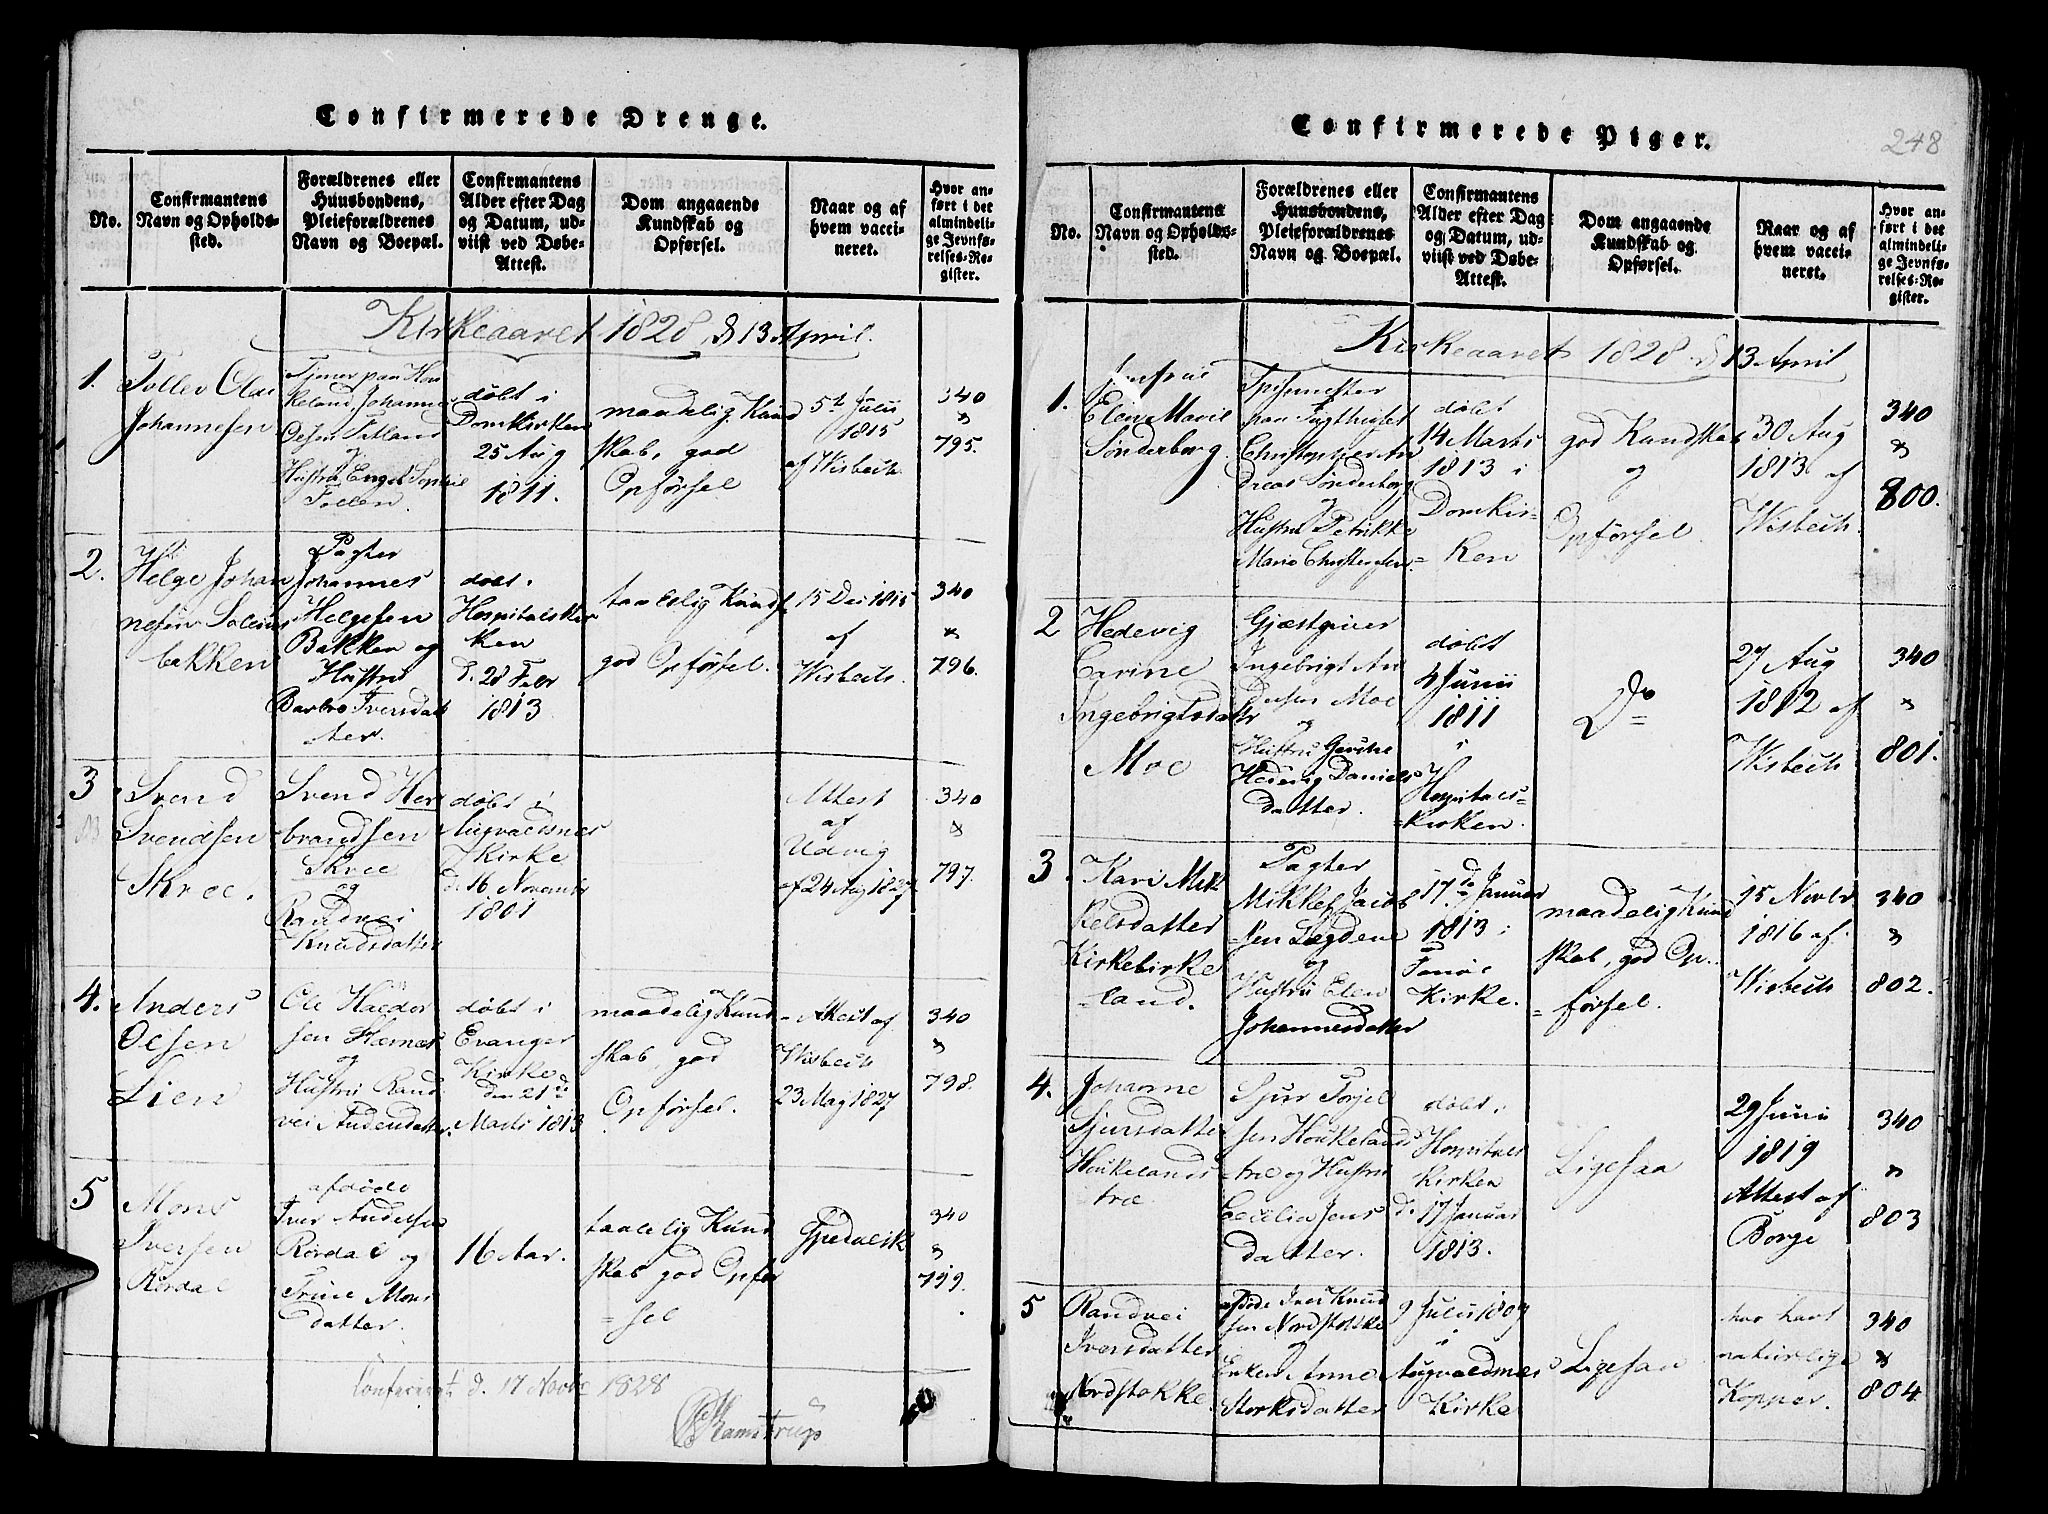 Confirmerede Drenge.
No.
Confirmantens
Navn og Opholds-
sted.
Forældrenes eller
Huusbondens,
Pleieforældrenes
Navn og Boepæl.
Confirmantens
Alder efter Dag
og Datum, ud-
viist ved Døbe-
Attest.
Dom angaaende
Kundskab og
Opførsel.
Naar og af
hvem vacci-
neret.
Hvor an-
ført i det
almindeli-
ge Jevnfø-
relses-Re-
gister.
Kirkeaaret 1828 d 13 April.
1.
Tollev Olai
Johannesen
Johannes
Olsen
og
Hustru Engel
døbt i
Domkirken
25 Aug
1811.
maadelig Kund
skab, god
Opførsel
5t Julii
1815
af Wisbech
340
795.
2.
Helge Johan
nesen
bakken
Pagter
Johannes
Helgesen
Bakken og
Hustru
Barbro Iversdat
ter.
døbt i
Hospitalskir
ken
d. 28 Febr
1813
taalelig Kunds
god Opførsel.
15 Dec 1815
af
Wisbech.
340
796.
3
Svend
Svendsen
Skree.
Svend Her
brandsen
Skree
og
Randvei
Knudsdatter
døbt i
Augvaldsnes
Kirke
d. 16 November
1801
Attest
af
Udvig
af 24 Aug 1827
340
797.
4.
Anders
Olsen
Lien
Ole Haldor
sen
og
Hustru Rand
vei
døbt i
Evanger
Kirke
den 21de
Marts 1813
maadelig Kund
skab, god
Opførsel.
Attest af
Wisbech
23 May 1827
340
798.
5
Mons
Iversen
Rørdal
afdøde
Iver Andersen
Rørdal og
Trine Mons
datter.
16 Aar.
taalelig Kund
skab god Opfør
=sel
340
799.
Confereret d. 17 Novbr 1828
Kamstrup
Confirmerede Piger.
248
No.
Confirmantens
Navn og Opholds-
sted.
Forældrenes eller
Huusbondens,
Pleieforældrenes
Navn og Boepæl.
Confirmantens
Alder efter Dag
og Datum, ud-
viist ved Døbe-
Attest.
Dom angaaende
Kundskab og
Opførsel.
Naar og af
hvem vacci-
neret.
Hvor an-
ført i det
almindeli-
ge Jevnfø-
relses-Re-
gister.
Kirkeaaret 1828 d 13 April
1.
Jomfrue
Elen Marie
Sønderborg.
Spisemester
paa Tugthuset
Christopher An
dreas Sønderborg
og
Hustru Petrikke
Marie Christensen.
døbt
14 Marts
1813 i
Domkir=
=ken
god Kundskab
og
Opførsel.
30 Aug
1813 af
Wisbech.
340
800.
2
Hedevig
Carine
Ingebrigtsdatter
Moe
Gjæstgiver
Ingebrigt An
dersen Moe
og
Hustru
Hedevig Daniels
datter.
døbt
4 Junii
1811
i
Hospitals=
=kirken.
Do
27 Aug
1812 af
Wisbech
340
801.
3.
Kari Mik
kelsdatter
Kirkebirke
land.
Pagter
Mikkel Jacob
=sen Lægdene
og
Hustru Elen
Johannesdatter
17de Januar
1813 i
Fanøe
Kirke.
maadelig Kund
skab, god Op=
=førsel.
15 Novbr
1816 af
Wisbech
340
802.
4.
Johanne
Sjursdatter
Houkelands
træ
Sjur Torjel
sen Houkelands
træ og Hustru
Cecilia Jens
datter.
døbt i
Hospitals
kirken
d. 17 Januar
1813.
Ligesaa
29 Juni
1819
Attest af
Borge
340
803
5
Randvei
Iversdatter
Nordstokke
afdøde Iver Knud
sen Nordstokke
og
Enken Anne
Storksdatter
9 Julii 1809
i
Augvaldsnes
Kirke
Ligesaa
har havt
naturlige
Kopper.
340
804.